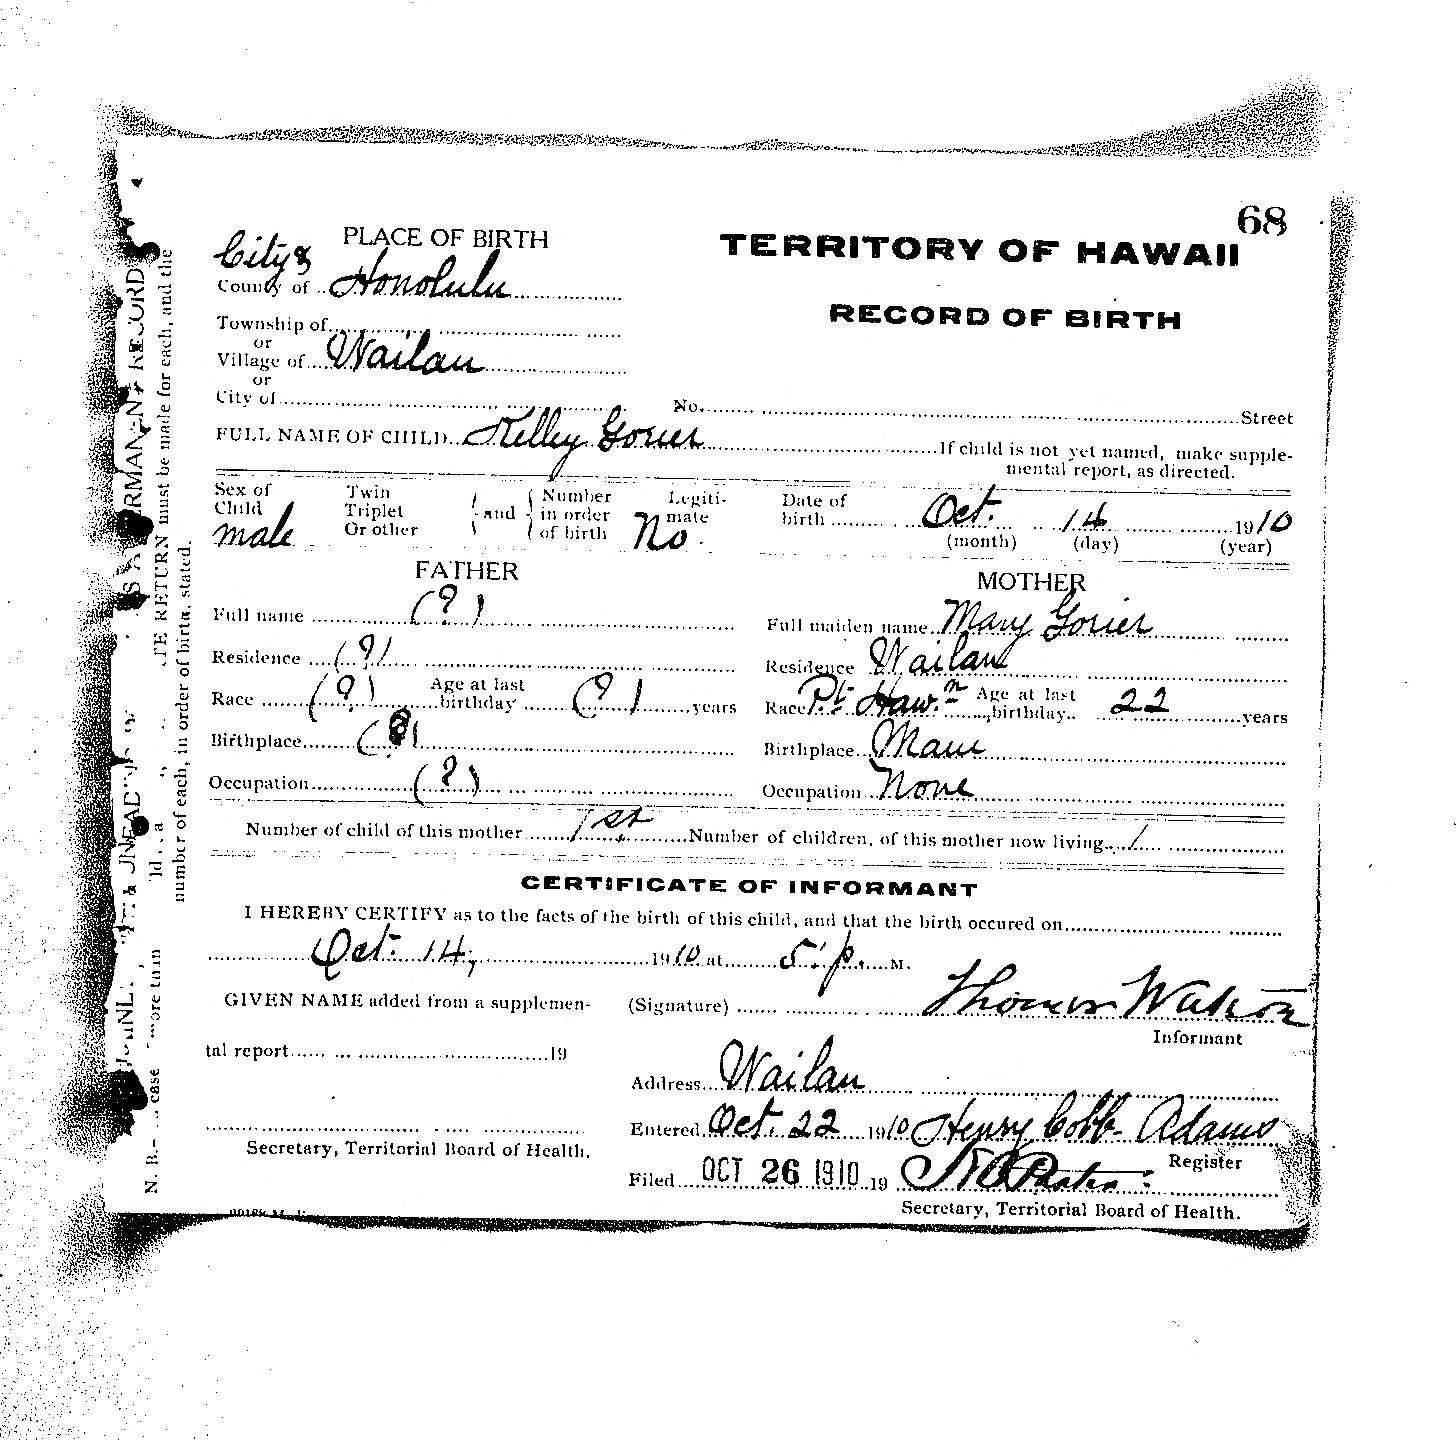 68
PLACE OF BIRTH
TERRITORY OF HAWAII
RECORD OF BIRTH
City &
County of Honolulu
Township of
or
Village of Wailau
or
City of No. Street
FULL NAME OF CHILD Kelley Gorier If child is not yet named, make supple-
mental report, as directed.
Sex of Child male Twin Triplet Or other and Number in order of birth Legiti- mate No. Date of birth Oct. 14 1910
(month) (day) (year)
FATHER
Full name (?)
Residence (?)
Race (?) Age at last birthday (?) years
Birthplace (?)
Occupation (?)
MOTHER
Full maiden name Mary Gorier
Residence Wailau
Race Pt. Haw.n Age at last birthday 22 years
Birthplace Maui
Occupation None
Number of child of this mother 1st Number of children, of this mother now living 1
CERTIFICATE OF INFORMANT
I HEREBY CERTIFY as to the facts of the birth of this child, and that the birth occured on
Oct. 14, 1910 at 5. p. M.
GIVEN NAME added from a supplemen-
tal report 19
Secretary, Territorial Board of Health.
(Signature) Thomas Watson
Informant
Address Wailau
Entered Oct. 22 1910 Henry Cobb Adams
Register
Filed OCT 26 1910 19
Secretary, Territorial Board of Health.
RETURN must be made for each, and the
number of each, in order of birth, stated.